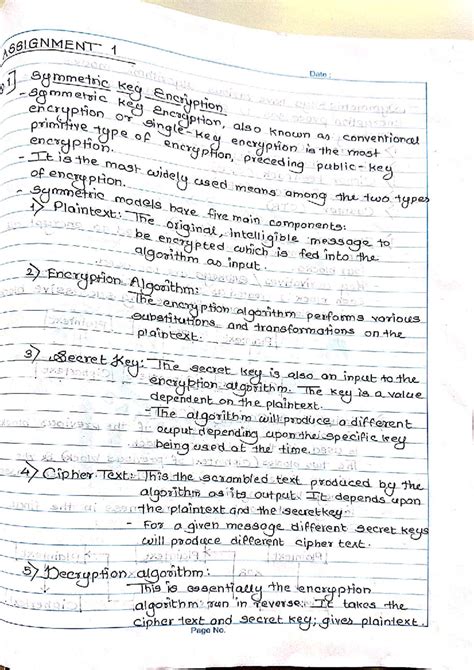 ASSIGNMENT 1
Date :
1] Symmetric Key Encryption
- Symmetric key Encryption, also known as conventional
encryption or single-key encryption is the most
primitive type of encryption, preceding public-key
encryption.
- It is the most widely used means among the two types
of encryption.
- Symmetric models have five main components:
1) Plaintext: The original, intelligible message to
be encrypted which is fed into the
algorithm as input.
2) Encryption Algorithm:
The encryption algorithm performs various
substitutions and transformations on the
plaintext.
3) Secret Key: The secret key is also an input to the
encryption algorithm. The key is a value
dependent on the plaintext.
- The algorithm will produce a different
ouput depending upon the specific key
being used at the time.
4) Cipher Text: This the scrambled text produced by the
algorithm as its output. It depends upon
the plaintext and the secretkey
- For a given message different secret keys
will produce different cipher text.
5) Decryption algorithm:
This is essentially the encryption
algorithm run in reverse. It takes the
cipher text and secret key; gives plaintext.
Page No.